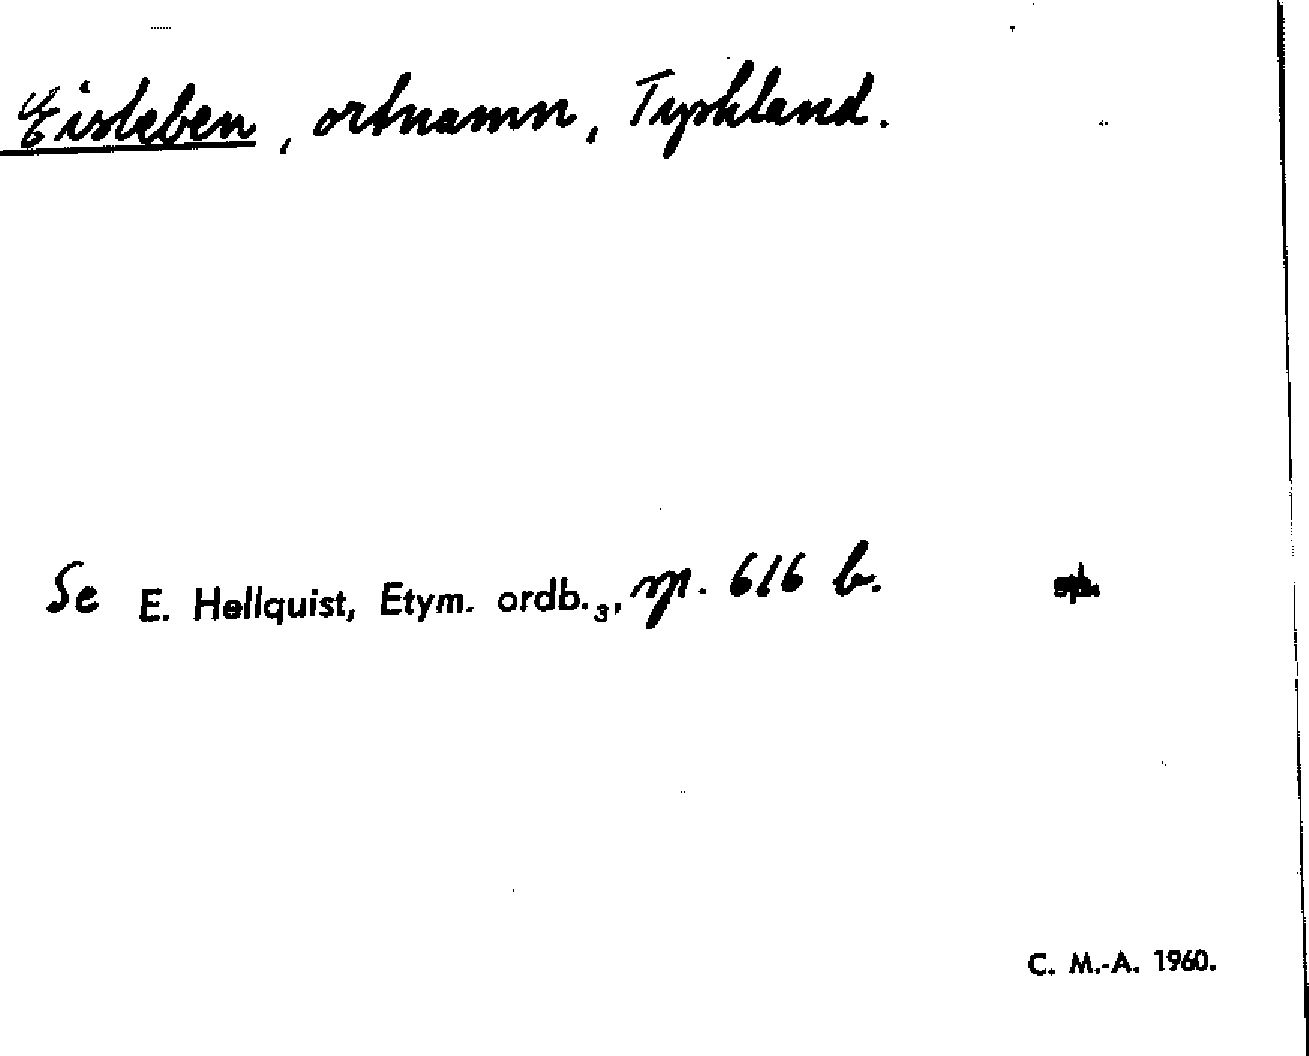 Eisleben, ortnamn, Tyskland.
Se E. Hellquist, Etym. ordb.₃, sp. 616 b.
C. M.-A. 1960.